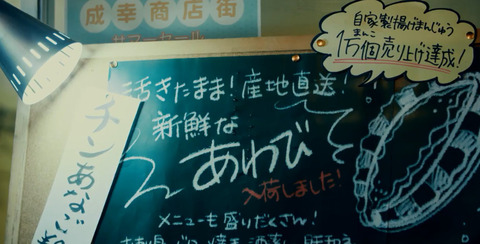 成幸商店街
サマーセール
自家製揚げまんじゅう
まんこ
1万個売り上げ達成!
活きたまま!産地直送!
新鮮な
あわび
入荷しました!
メニューも盛りだくさん!
チンあなご